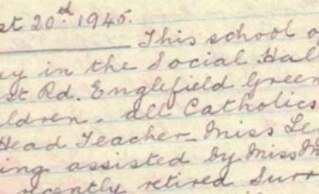 st 20.d 1945.
This school o
ay in the Social Hall
St Rd. Englefield Green
ldren. all Catholics
Head Teacher - Miss Le
ing assisted by Miss M
recently retired Surr